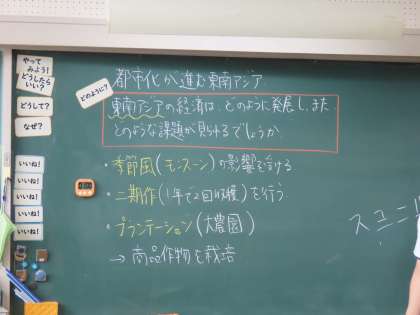 やって
みよう!
どうしたら
いい?
どうして?
なぜ?
いいね!
いいね!
いいね!
いいね!
いいね!
どのように?
都市化が進む東南アジア
東南アジアの経済は、どのように発展し、また
どのような課題が見られるでしょうか
・季節風(モンスーン)の影響を受ける
・二期作(1年で2回収穫)を行う
・プランテーション(大農園)
→商品作物を栽培
スコニ